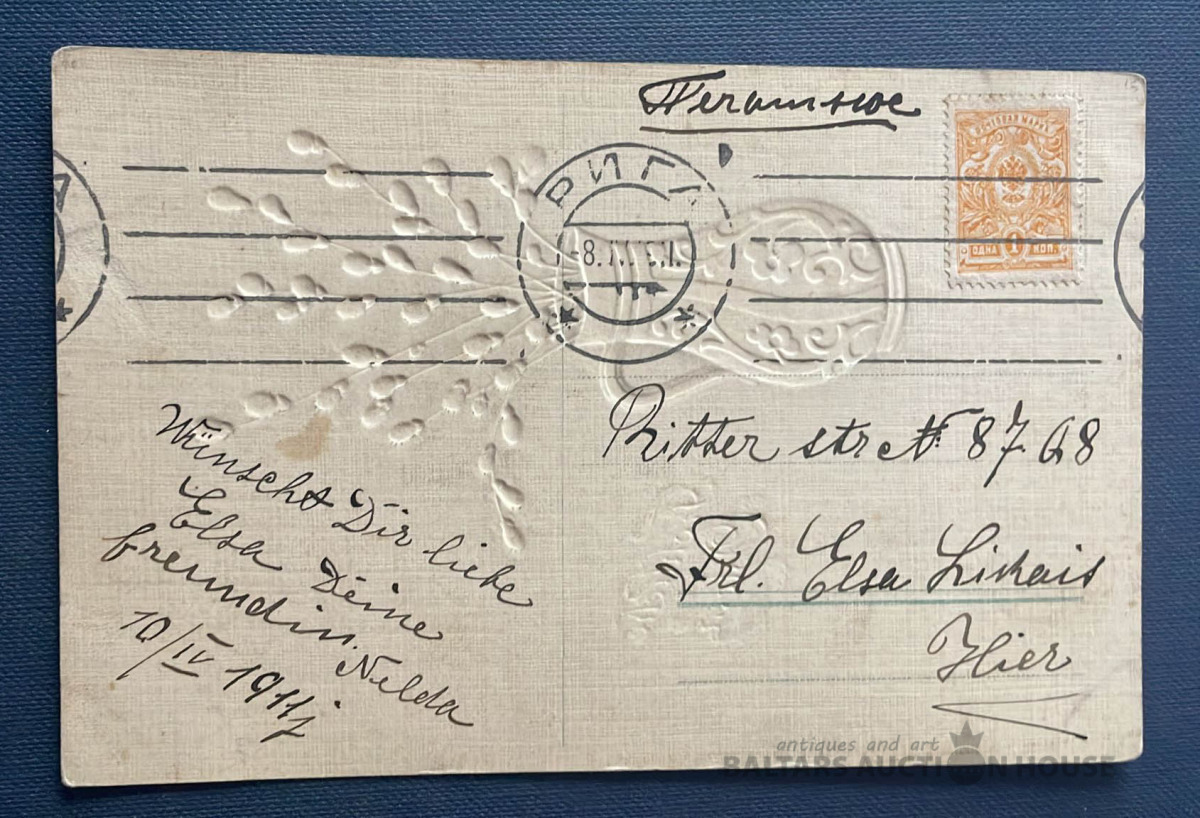 Печатное
ПОЧТОВАЯ МАРКА
ОДНА 1 КОП.
РИГА
А
Ritter str № 87.68
Frl. Elsa Likais
Hier
Wünscht Dir liebe
Elsa Deine
freundin. Nelda
10/IV 1911j
antiques and art
BALTARS AUCTION HOUSE